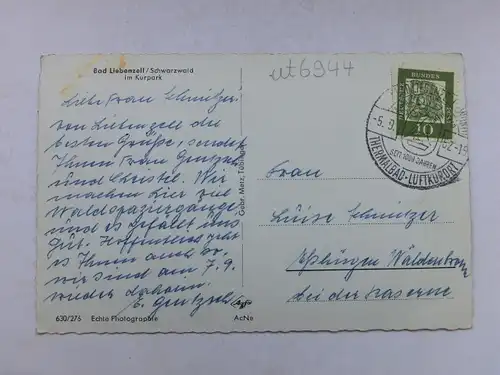 Bad Liebenzell/Schwarzwald
im Kurpark
ut6944
Liebe Frau Schmitzer.
Von Liebenzell die
besten Grüße, sendet
Ihnen Frau Gentzel
und Christel. Wir
machen hier viel
Waldspaziergänge,
und es gefällt uns
gut. Hoffentlich geht
es Ihnen auch so.
wir sind am 7.9.
wieder daheim.
E. Gentzel
Gebr. Metz, Tübingen
630/276 Echte Photographie
AcNe
DEUTSCHE
BUNDES
10
-5.9.
62-15
SEIT 1000 JAHREN
THERMALBAD-LUFTKURORT
Frau
Luise Schmitzer
Eßlingen Wäldenbronn
bei der Kaserne